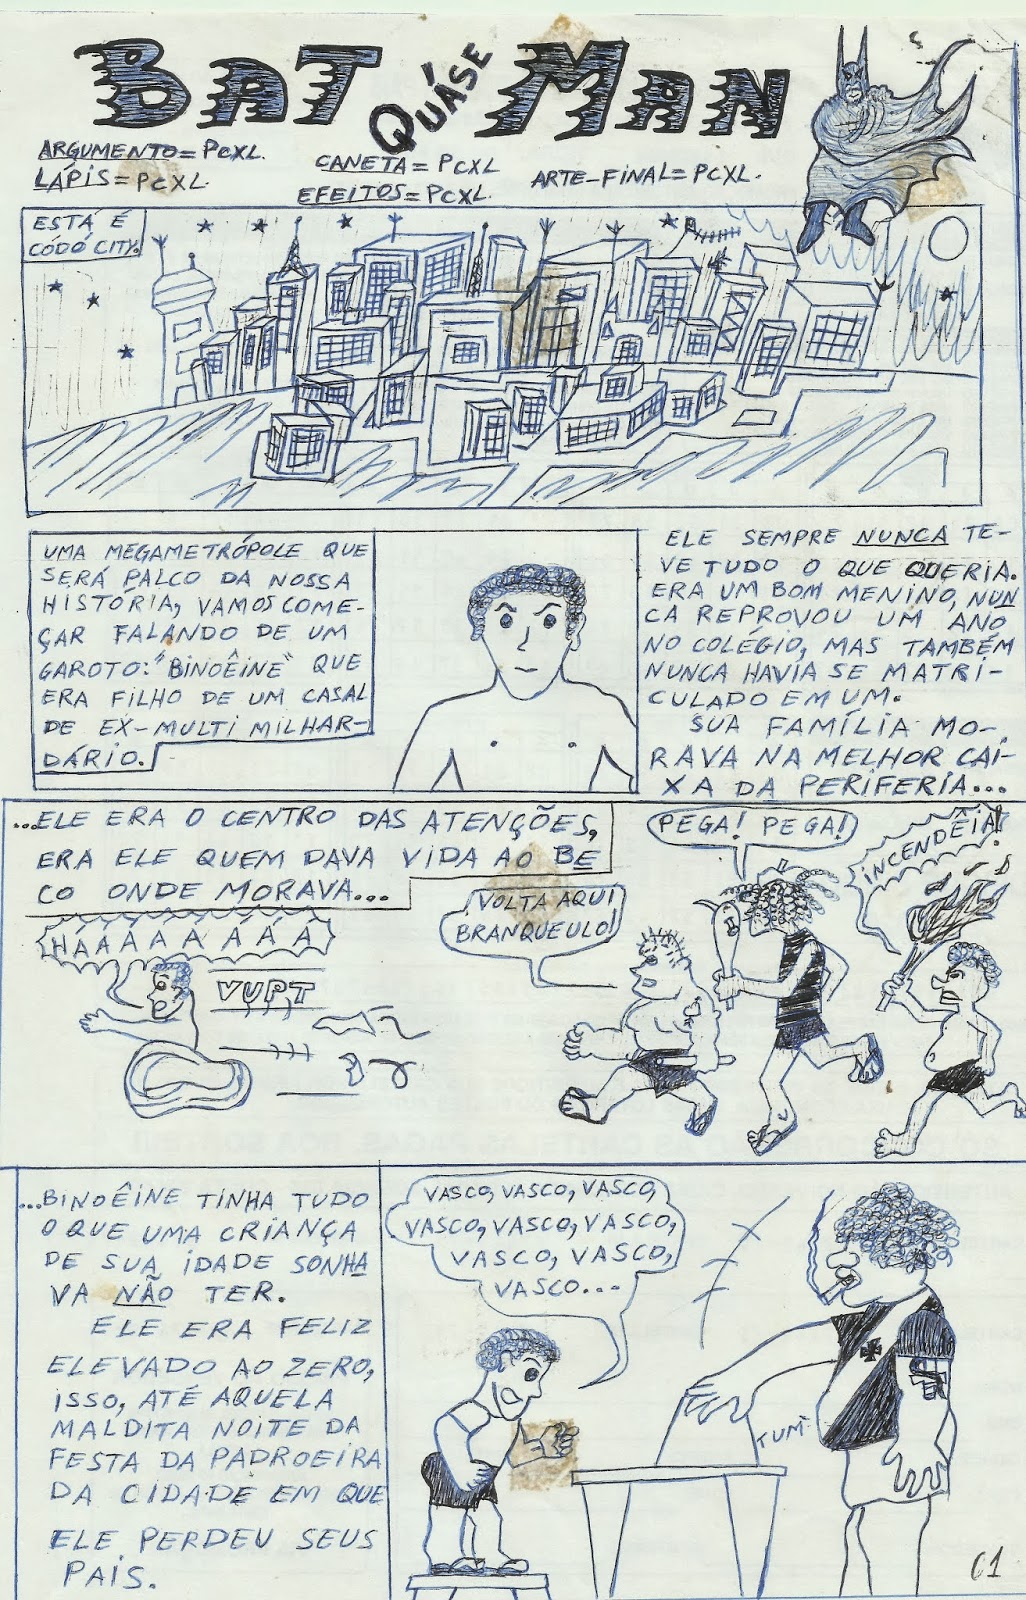 BAT QUÁSE MAN
ARGUMENTO = PCXL.
LÁPIS = PCXL.
CANETA = PCXL
EFEITOS = PCXL.
ARTE-FINAL = PCXL.
ESTÁ É
CÓDÓ CITY.
UMA MEGAMETRÓPOLE QUE
SERÁ PALCO DA NOSSA
HISTÓRIA, VAMOS COME-
ÇAR FALANDO DE UM
GAROTO: "BINOÊINE" QUE
ERA FILHO DE UM CASAL
DE EX-MULTI MILHAR-
DÁRIO.
ELE SEMPRE NUNCA TE-
VE TUDO O QUE QUERIA.
ERA UM BOM MENINO, NUN
CA REPROVOU UM ANO
NO COLÉGIO, MAS TAMBÉM
NUNCA HAVIA SE MATRI-
CULADO EM UM.
SUA FAMÍLIA MO-
RAVA NA MELHOR CAI-
XA DA PERIFERIA...
...ELE ERA O CENTRO DAS ATENÇÕES,
ERA ELE QUEM DAVA VIDA AO BE
CO ONDE MORAVA...
HÁÁÁÁÁÁÁ
VUPT
VOLTA AQUI
BRANQUEULO!
PEGA! PEGA!
INCENDÊIA!
...BINOÊINE TINHA TUDO
O QUE UMA CRIANÇA
DE SUA IDADE SONHA
VA NÃO TER.
ELE ERA FELIZ
ELEVADO AO ZERO,
ISSO, ATÉ AQUELA
MALDITA NOITE DA
FESTA DA PADROEIRA
DA CIDADE EM QUE
ELE PERDEU SEUS
PAIS.
VASCO, VASCO, VASCO,
VASCO, VASCO, VASCO,
VASCO, VASCO,
VASCO...
TUM
01